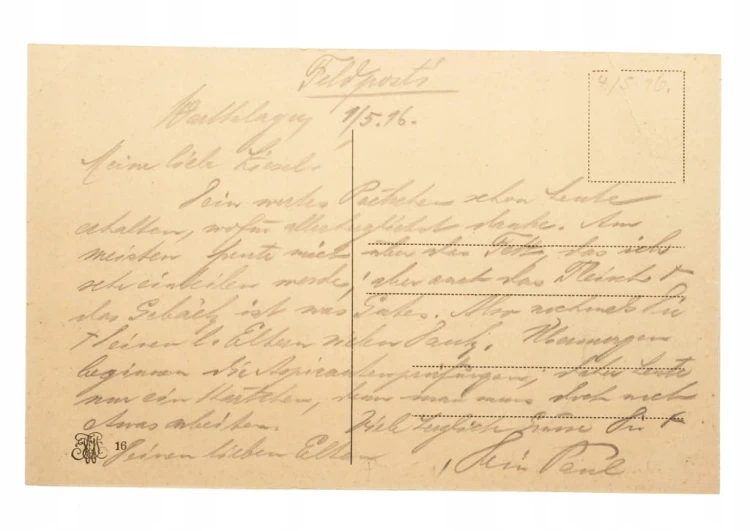 Feldpost
4/5.16.
1/5.16.
Meine liebe Liesel.
Dein wertes Paketchen schon heute
erhalten, wofür allerherzlichst danke. Am
meisten freute mich aber das Fett, das ich
sehr einteilen werde, aber auch das Fleisch +
das Gebäck ist was Gutes. Also nochmals Dir
+ Deinen l. Eltern vielen Dank. Übermorgen
beginnen die Aspirantenprüfungen, daher heute
nur ein Kärtchen, denn man muss doch noch
etwas arbeiten. Viele herzlich Grüsse Dir +
Deinen lieben Eltern
Dein Paul
16